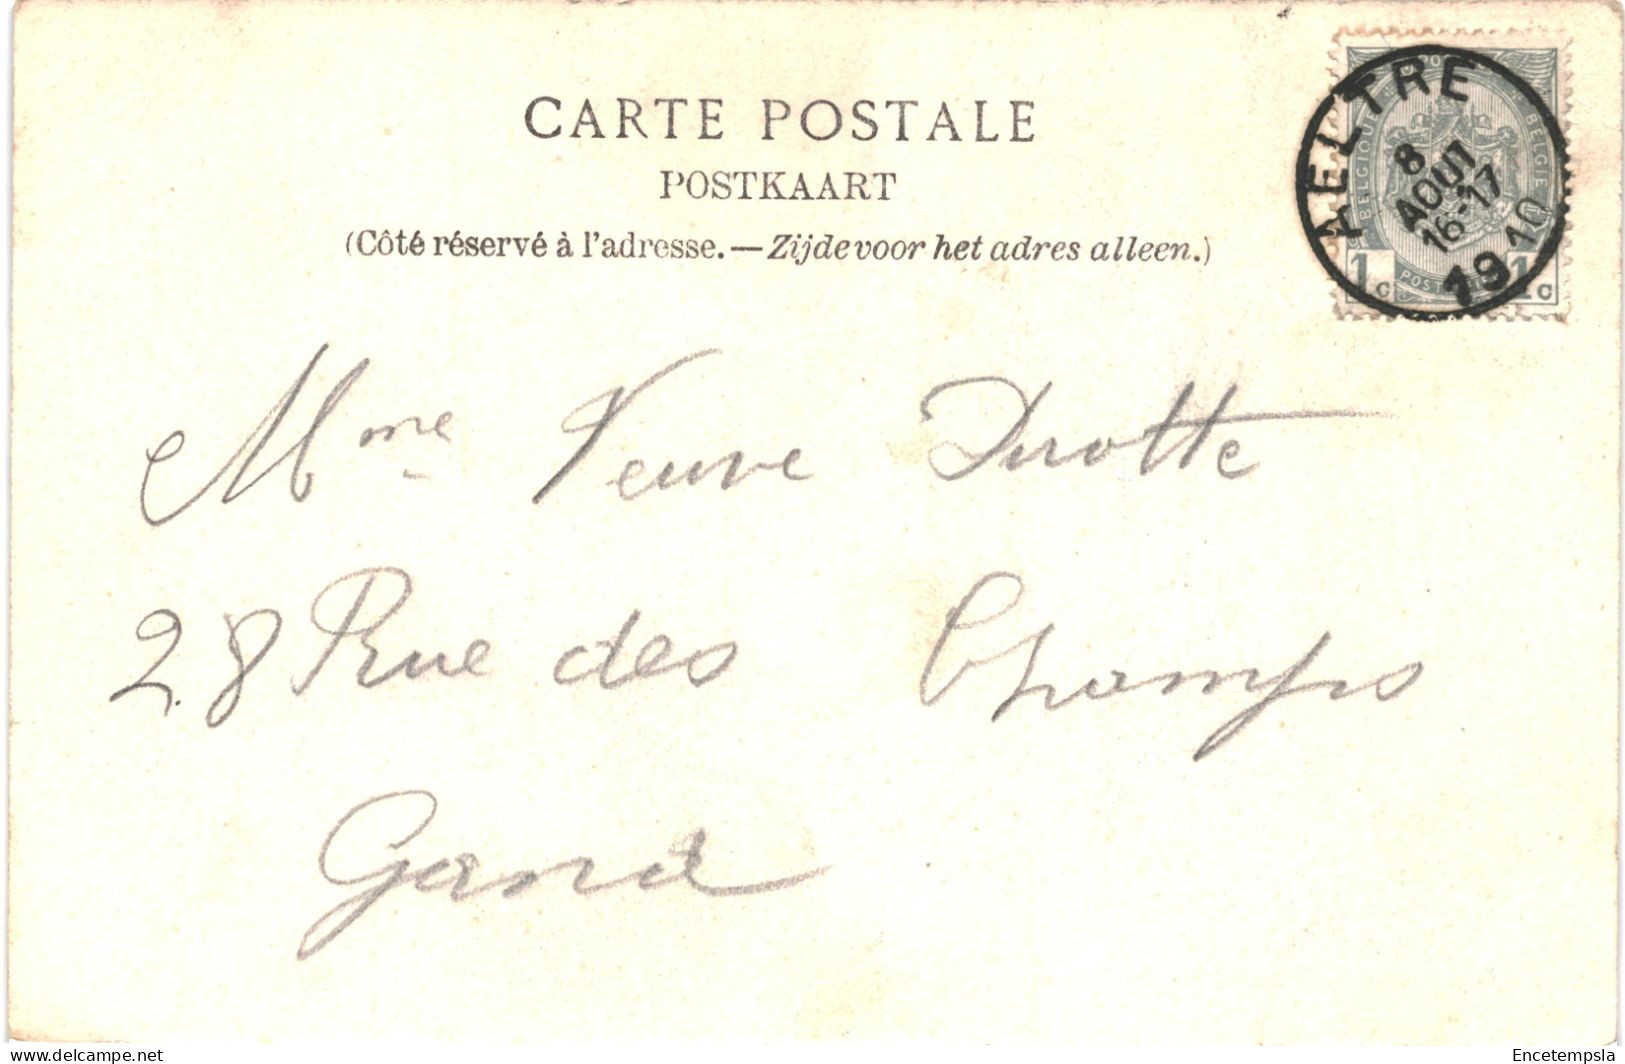 CARTE POSTALE
POSTKAART
(Côté réservé à l'adresse. — Zijde voor het adres alleen.)
AELTRE
8
AOUT
16-17
1910
BELGIQUE
BELGIE
1c
1c
Mme Veuve Durotte
28 Rue des Champs
Gand
www.delcampe.net
Encetempsla